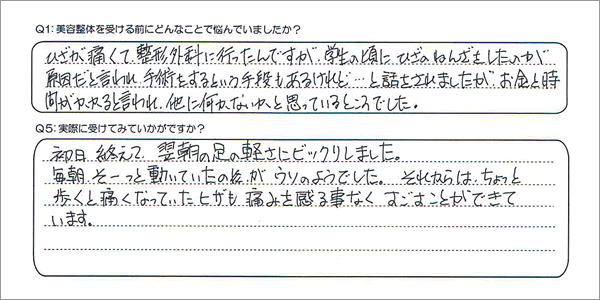 Q1:美容整体を受ける前にどんなことで悩んでいましたか?
ひざが痛くて、整形外科に行ったんですが、学生の頃にひざのねんざをしたのが
原因だと言われ、手術をするという手段もあるけれど…と話をされましたが、お金と時
間がかかると言われ、他に何かないかと思っているところでした。
Q5:実際に受けてみていかがですか?
初日終えて、翌朝の足の軽さにビックリしました。
毎朝、そーっと動いていたの
が、ウソのようでした。それからは、ちょっと
歩くと痛くなっていたヒザも痛みを感る事なくすごすことができて
います。